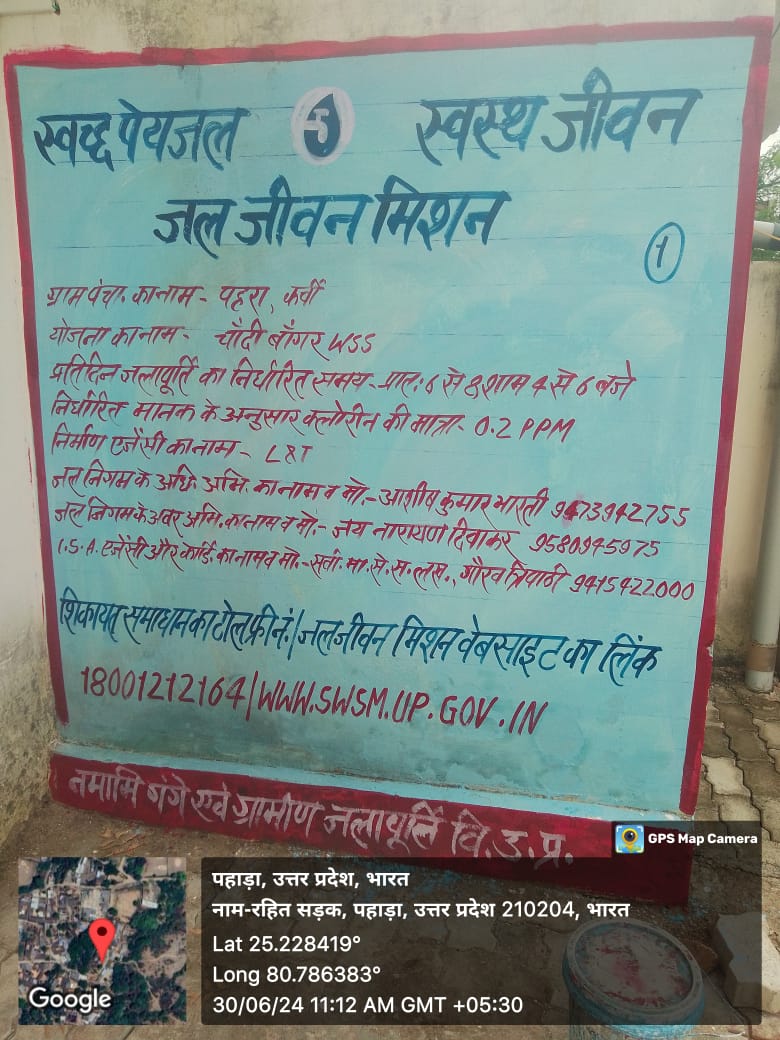 स्वच्छ पेयजल स्वस्थ जीवन
जल जीवन मिशन
1
ग्राम पंचा. का नाम - पहरा, कर्वी
योजना का नाम - चाँदी बाँगर WSS
प्रतिदिन जलापूर्ति का निर्धारित समय - प्रात: 6 से 8 शाम 4 से 6 बजे
निर्धारित मानक के अनुसार क्लोरीन की मात्रा - 0.2 PPM
निर्माण एजेंसी का नाम - L&T
जल निगम के अधि. अभि. का नाम व मो. - आशीष कुमार भारती 9473942755
जल निगम के अवर अभि. का नाम व मो. - जय नारायण दिवाकर 9580945975
I.S.A. एजेंसी और कोर्डि. का नाम व मो. - सर्वो. मा. से. स. लस., गौरव त्रिपाठी 9415422000
शिकायत समाधान का टोल फ्री नं. | जल जीवन मिशन वेबसाइट का लिंक
18001212164 | WWW.SWSM.UP.GOV.IN
नमामि गंगे एवं ग्रामीण जलापूर्ति वि. उ. प्र.
GPS Map Camera
पहाड़ा, उत्तर प्रदेश, भारत
नाम-रहित सड़क, पहाड़ा, उत्तर प्रदेश 210204, भारत
Lat 25.228419°
Long 80.786383°
30/06/24 11:12 AM GMT +05:30
Google